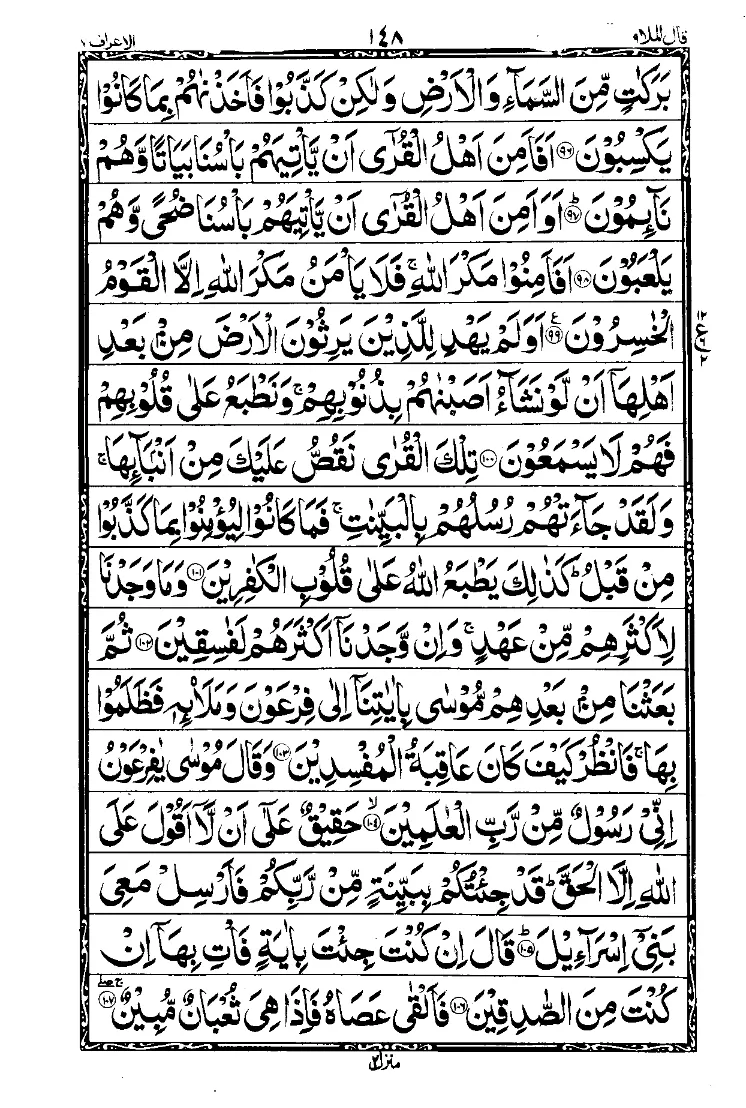 قال الملا ٩ ١٤٨ الاعراف ٧
بَرَكٰتٍ مِّنَ السَّمَآءِ وَالْاَرْضِ وَلٰكِنْ كَذَّبُوْا فَاَخَذْنٰهُمْ بِمَا كَانُوْا
يَكْسِبُوْنَ ۝٩٦ اَفَاَمِنَ اَهْلُ الْقُرٰٓى اَنْ يَّاْتِيَهُمْ بَاْسُنَا بَيَاتًا وَّهُمْ
نَآئِمُوْنَ ۝٩٧ؕ اَوَاَمِنَ اَهْلُ الْقُرٰٓى اَنْ يَّاْتِيَهُمْ بَاْسُنَا ضُحًى وَّهُمْ
يَلْعَبُوْنَ ۝٩٨ اَفَاَمِنُوْا مَكْرَ اللّٰهِ ۚ فَلَا يَاْمَنُ مَكْرَ اللّٰهِ اِلَّا الْقَوْمُ
الْخٰسِرُوْنَ ۝٩٩ع اَوَلَمْ يَهْدِ لِلَّذِيْنَ يَرِثُوْنَ الْاَرْضَ مِنْۢ بَعْدِ
اَهْلِهَاۤ اَنْ لَّوْ نَشَآءُ اَصَبْنٰهُمْ بِذُنُوْبِهِمْ ۚ وَنَطْبَعُ عَلٰى قُلُوْبِهِمْ
فَهُمْ لَا يَسْمَعُوْنَ ۝١٠٠ تِلْكَ الْقُرٰى نَقُصُّ عَلَيْكَ مِنْ اَنْۢبَآئِهَا ۚ
وَلَقَدْ جَآءَتْهُمْ رُسُلُهُمْ بِالْبَيِّنٰتِ ۚ فَمَا كَانُوْا لِيُؤْمِنُوْا بِمَا كَذَّبُوْا
مِنْ قَبْلُ ؕ كَذٰلِكَ يَطْبَعُ اللّٰهُ عَلٰى قُلُوْبِ الْكٰفِرِيْنَ ۝١٠١ وَمَا وَجَدْنَا
لِاَكْثَرِهِمْ مِّنْ عَهْدٍ ۚ وَاِنْ وَّجَدْنَاۤ اَكْثَرَهُمْ لَفٰسِقِيْنَ ۝١٠٢ ثُمَّ
بَعَثْنَا مِنْۢ بَعْدِهِمْ مُّوْسٰى بِاٰيٰتِنَاۤ اِلٰى فِرْعَوْنَ وَمَلَا۟ئِهٖ فَظَلَمُوْا
بِهَا ۚ فَانْظُرْ كَيْفَ كَانَ عَاقِبَةُ الْمُفْسِدِيْنَ ۝١٠٣ وَقَالَ مُوْسٰى يٰفِرْعَوْنُ
اِنِّيْ رَسُوْلٌ مِّنْ رَّبِّ الْعٰلَمِيْنَ ۝١٠٤ۙ حَقِيْقٌ عَلٰٓى اَنْ لَّاۤ اَقُوْلَ عَلَى
اللّٰهِ اِلَّا الْحَقَّ ؕ قَدْ جِئْتُكُمْ بِبَيِّنَةٍ مِّنْ رَّبِّكُمْ فَاَرْسِلْ مَعِيَ
بَنِيْٓ اِسْرَآءِيْلَ ۝١٠٥ؕ قَالَ اِنْ كُنْتَ جِئْتَ بِاٰيَةٍ فَاْتِ بِهَاۤ اِنْ
كُنْتَ مِنَ الصّٰدِقِيْنَ ۝١٠٦ فَاَلْقٰى عَصَاهُ فَاِذَا هِيَ ثُعْبَانٌ مُّبِيْنٌ ۝١٠٧
منزل ٢